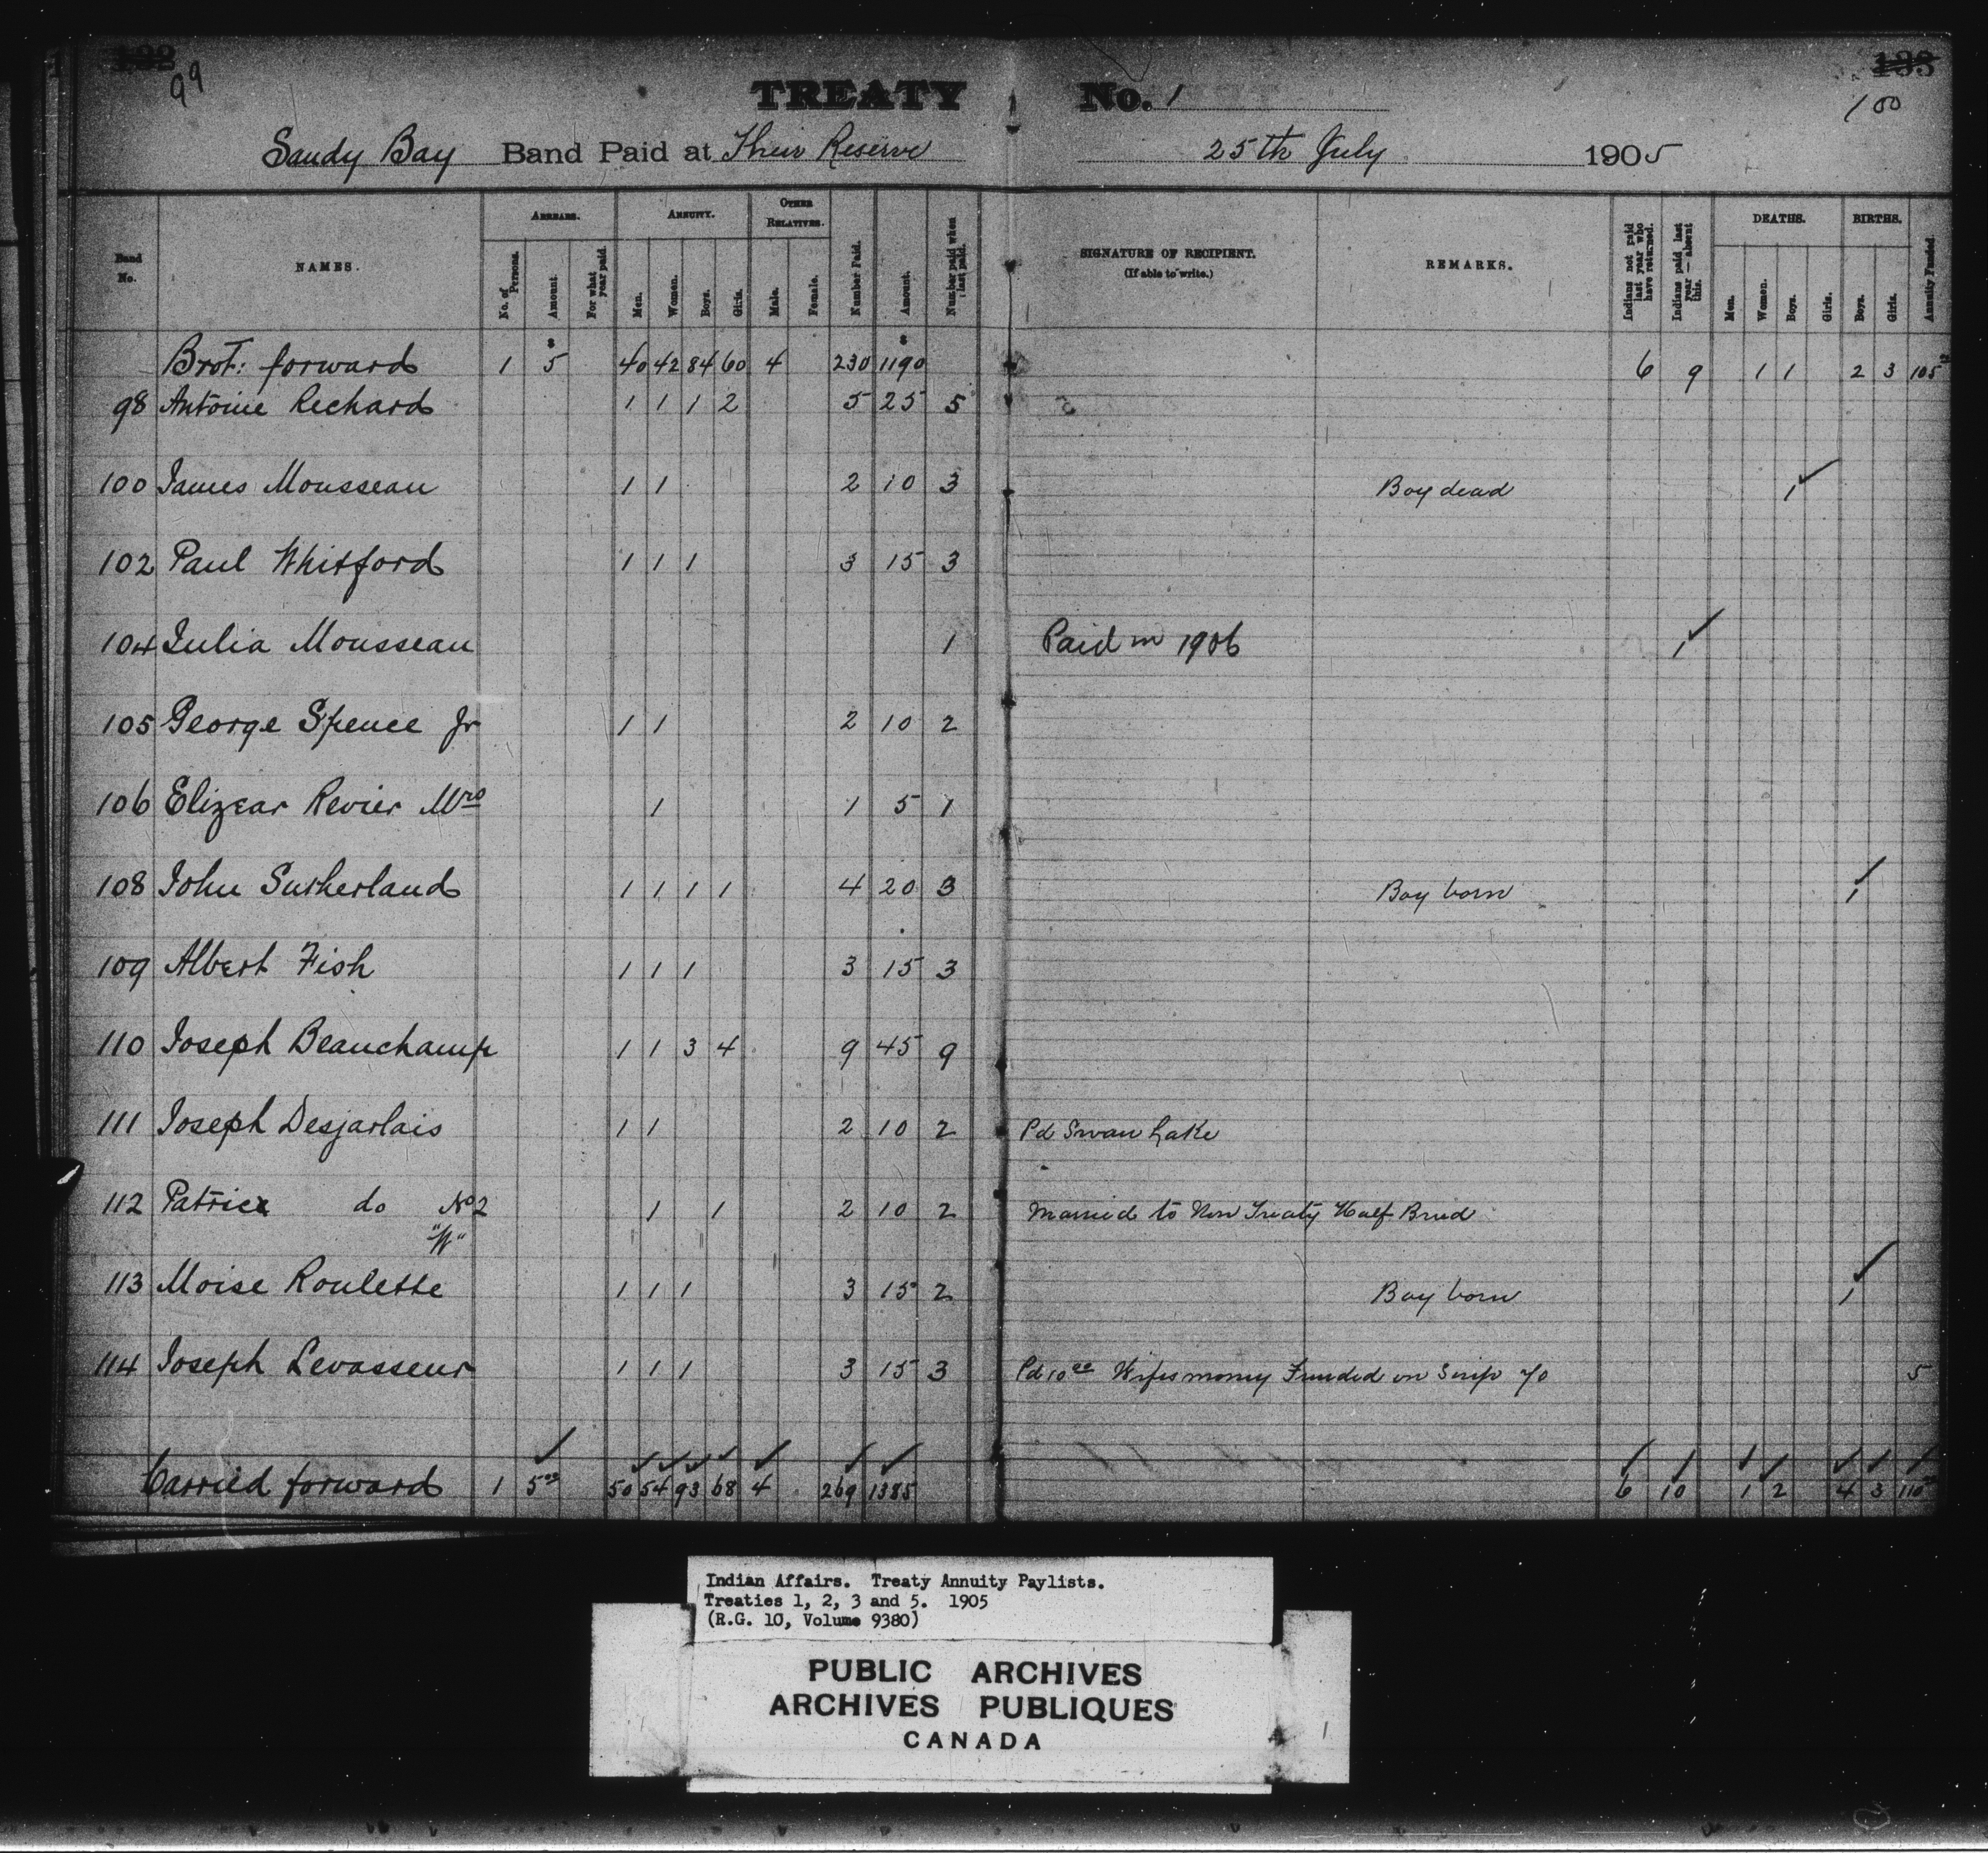 192 193
99 100
TREATY No. 1
Sandy Bay Band Paid at Their Reserve 25th July 1905
Band No. NAMES. ARREARS. No. of Persons. Amount. For what year paid. ANNUITY. Men. Women. Boys. Girls. OTHER RELATIVES. Male. Female. Number Paid. Amount. Number paid when last paid. SIGNATURE OF RECIPIENT. (If able to write.) REMARKS. Indians not paid last year who have returned. Indians paid last year — absent this. DEATHS. Men. Women. Boys. Girls. BIRTHS. Boys. Girls. Annuity Funded.
Brot: forward 1 $5 40 42 84 60 4 230 $1190 6 9 1 1 2 3 105
98 Antoine Richard 1 1 1 2 5 25 5
100 James Mousseau 1 1 2 10 3 Boy dead 1
102 Paul Whitford 1 1 1 3 15 3
104 Julia Mousseau 1 Paid in 1906 1
105 George Spence Jr 1 1 2 10 2
106 Elizear Revier Mrs 1 1 5 1
108 John Sutherland 1 1 1 1 4 20 3 Boy born 1
109 Albert Fish 1 1 1 3 15 3
110 Joseph Beauchamp 1 1 3 4 9 45 9
111 Joseph Desjarlais 1 1 2 10 2 Pd Swan Lake
112 Patrice do No 2 1 1 2 10 2 Married to Non Treaty Half Breed
"W"
113 Moise Roulette 1 1 1 3 15 2 Boy born 1
114 Joseph Levasseur 1 1 1 3 15 3 Pd 10 00 Wifes money Funded on Scrip 7/0 5
Carried forward 1 5 00 50 54 93 68 4 269 1385 6 10 1 2 4 3 110
Indian Affairs. Treaty Annuity Paylists.
Treaties 1, 2, 3 and 5. 1905
(R.G. 10, Volume 9380)
PUBLIC ARCHIVES
ARCHIVES PUBLIQUES
CANADA